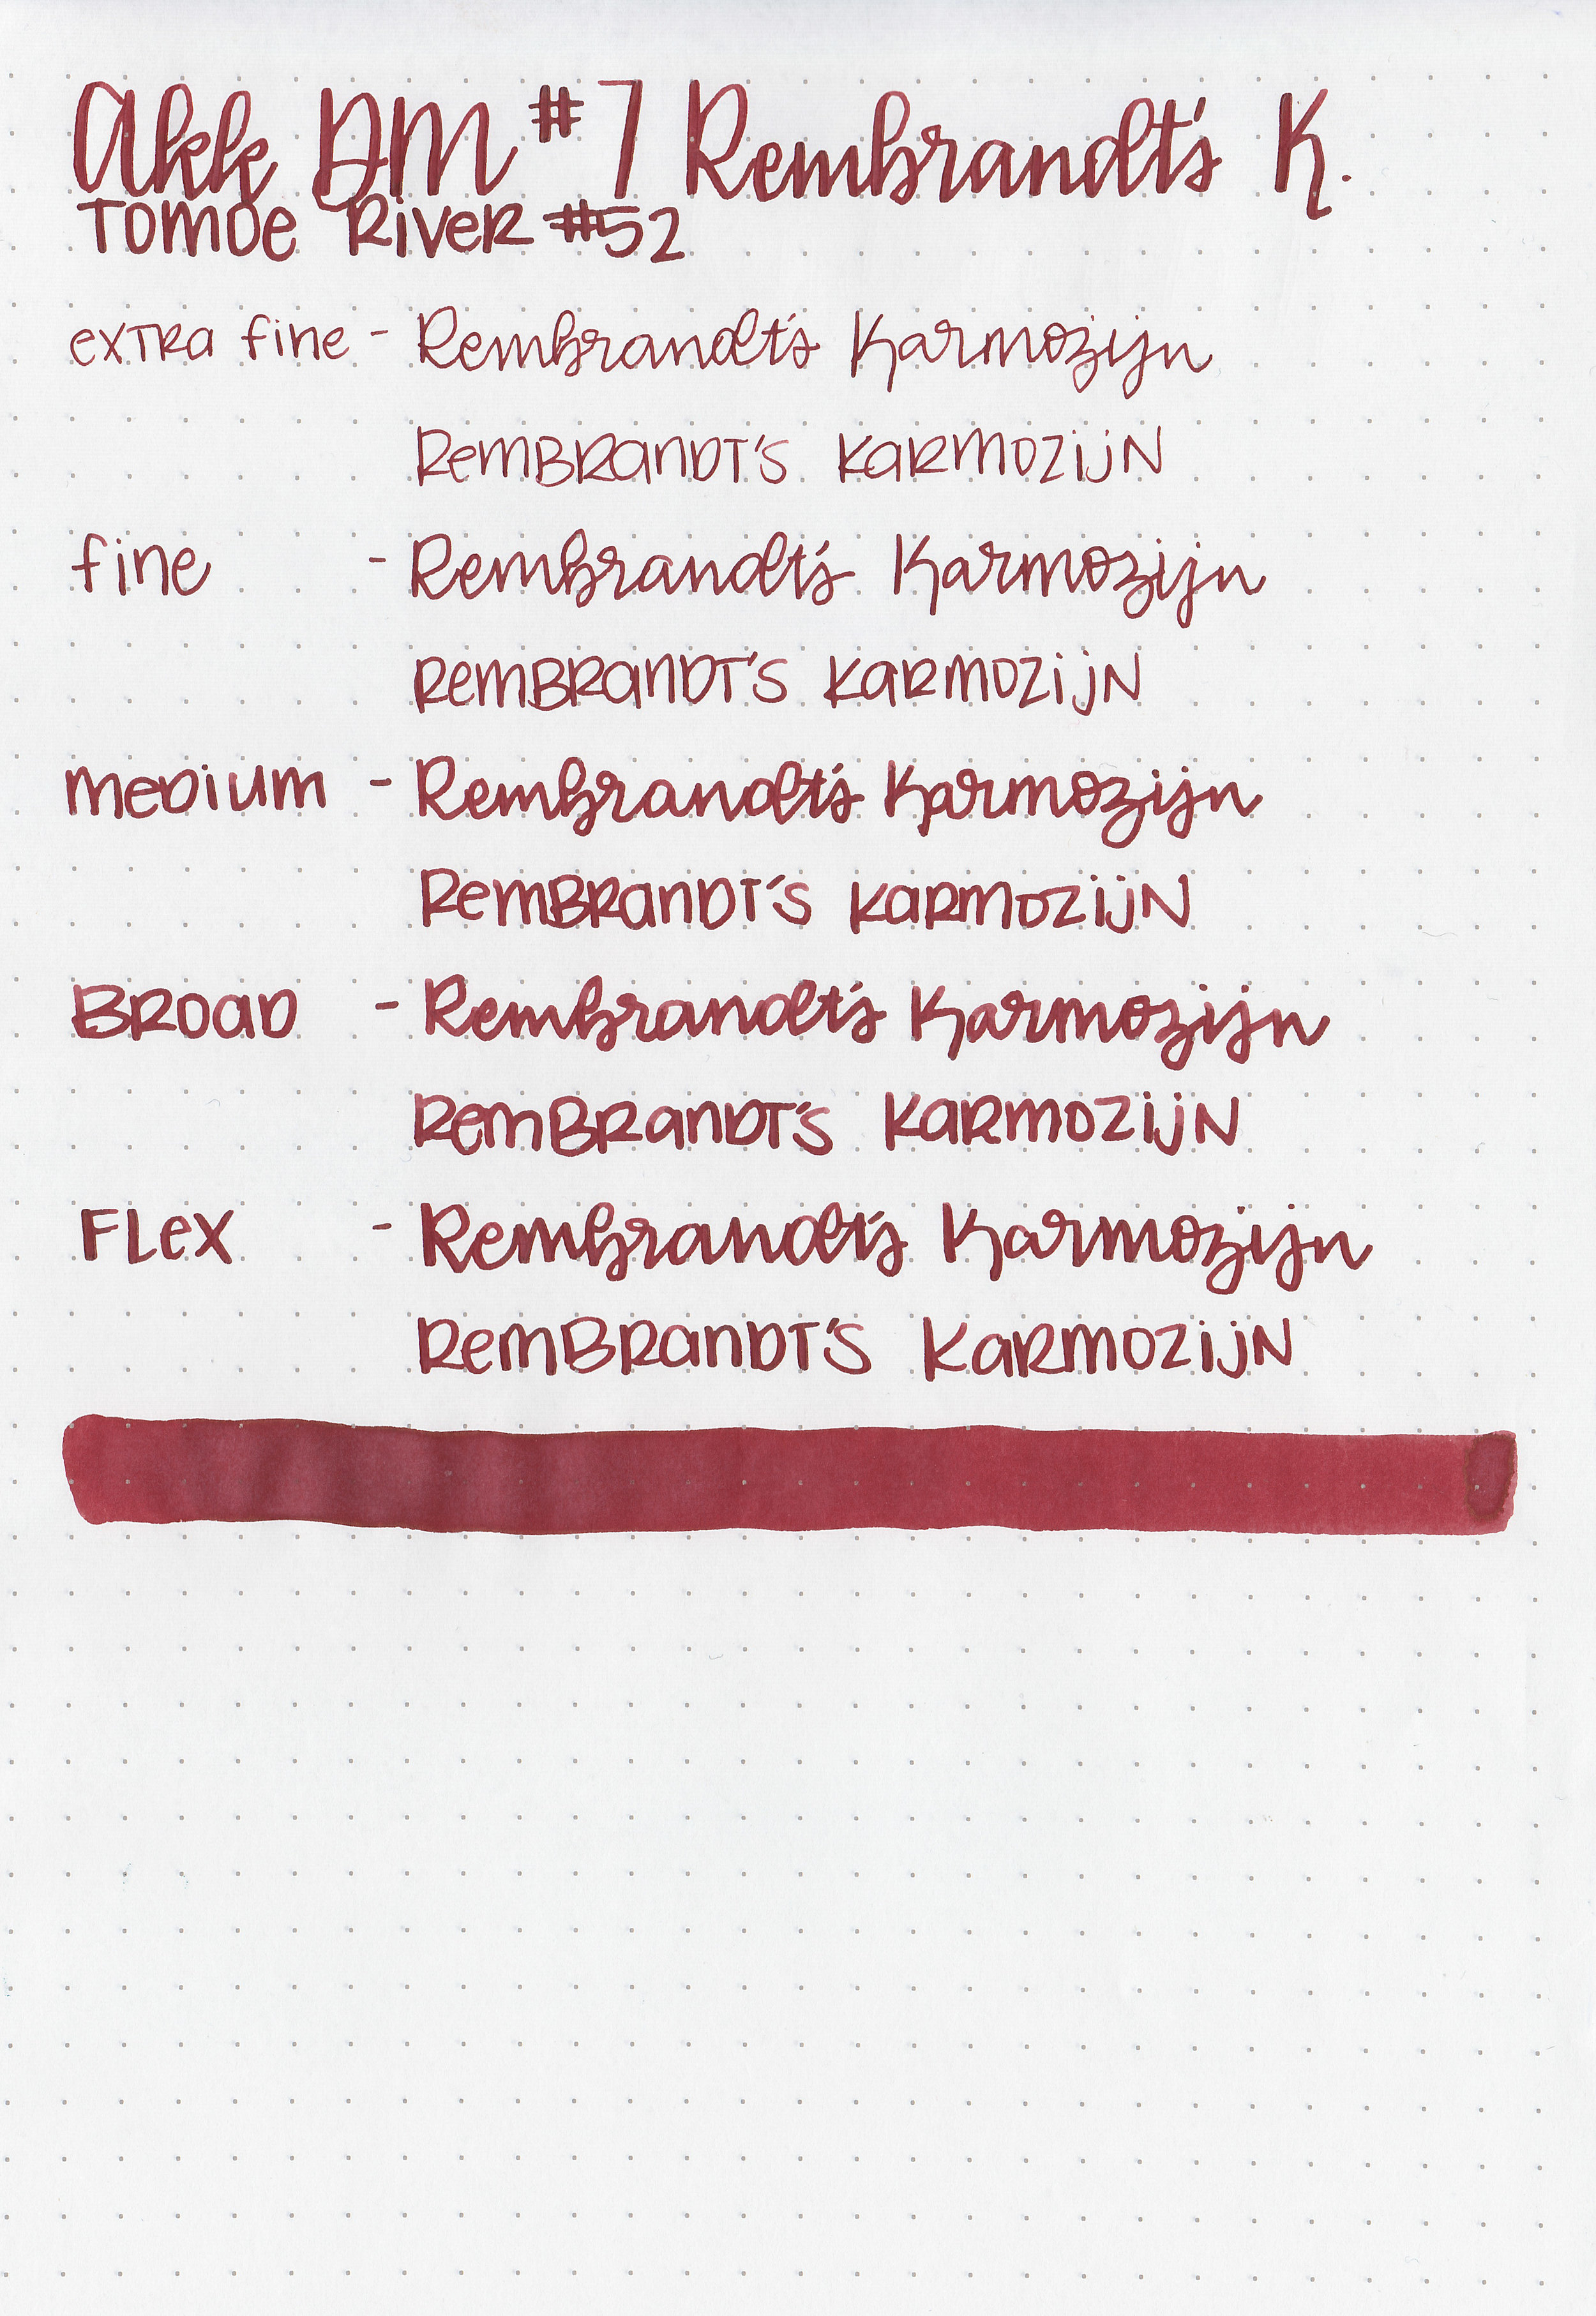 Akk DM #7 Rembrandt's K.
Tomoe River #52
extra fine - Rembrandt's Karmozijn
Rembrandt's Karmozijn
fine - Rembrandt's Karmozijn
Rembrandt's Karmozijn
medium - Rembrandt's Karmozijn
Rembrandt's Karmozijn
Broad - Rembrandt's Karmozijn
Rembrandt's Karmozijn
Flex - Rembrandt's Karmozijn
Rembrandt's Karmozijn